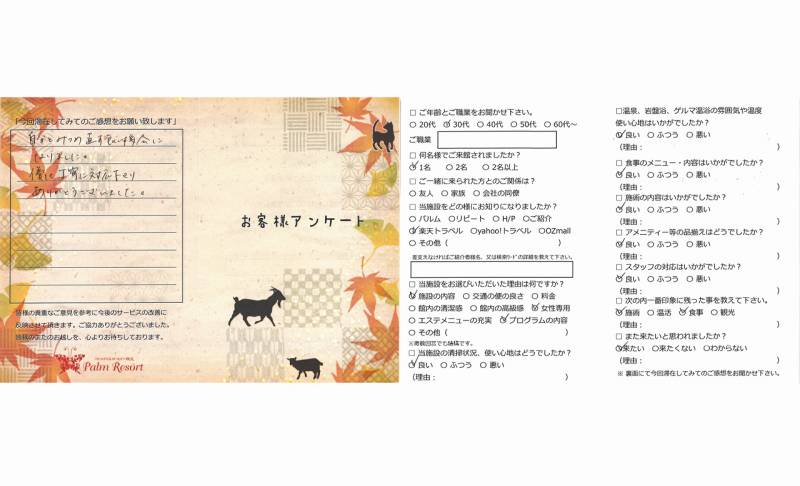 「今回滞在してみてのご感想をお願い致します」
自分をみつめ直す良い機会に
なりました。
優しく丁寧に対応下さり
ありがとうございました。
お客様アンケート
皆様の貴重なご意見を参考に今後のサービスの改善に
反映させて頂きます。ご協力ありがとうございました。
皆様のまたのお越しを、心よりお待ちしております。
Palm Resort
□ ご年齢とご職業をお聞かせ下さい。
○ 20代 ○ 30代 ○ 40代 ○ 50代 ○ 60代～
ご職業
□ 何名様でご来館されましたか？
○ 1名 ○ 2名 ○ 2名以上
□ ご一緒に来られた方とのご関係は？
○ 友人 ○ 家族 ○ 会社の同僚
□ 当施設をどの様にお知りになりましたか？
○ パルム ○リピート ○ H/P ○ご紹介
○ 楽天トラベル ○yahoo!トラベル ○OZmall
○ その他（ ）
差支えなければご紹介者様名、又は検索ワードの詳細を教えて下さい。
□ 当施設をお選びいただいた理由は何ですか？
○ 施設の内容 ○ 交通の便の良さ ○ 料金
○ 館内の清潔感 ○ 館内の高級感 ○ 女性専用
○ エステメニューの充実 ○ プログラムの内容
○ その他（ ）
※複数回答でも結構です。
□ 当施設の清掃状況、使い心地はどうでしたか？
○ 良い ○ ふつう ○ 悪い
（理由： ）
□温泉、岩盤浴、ゲルマ温浴の雰囲気や温度
使い心地はいかがでしたか？
○ 良い ○ ふつう ○ 悪い
（理由： ）
□ 食事のメニュー・内容はいかがでしたか？
○ 良い ○ ふつう ○ 悪い
（理由： ）
□ 施術の内容はいかがでしたか？
○ 良い ○ ふつう ○ 悪い
（理由： ）
□ アメニティー等の品揃えはどうでしたか？
○ 良い ○ ふつう ○ 悪い
（理由： ）
□ スタッフの対応はいかがでしたか？
○ 良い ○ ふつう ○ 悪い
（理由： ）
□ 次の内一番印象に残った事を教えて下さい。
○ 施術 ○ 温活 ○ 食事 ○ 観光
□ また来たいと思われましたか？
○来たい ○来たくない ○わからない
（理由： ）
※ 裏面にて今回滞在してみてのご感想をお聞かせ下さい。